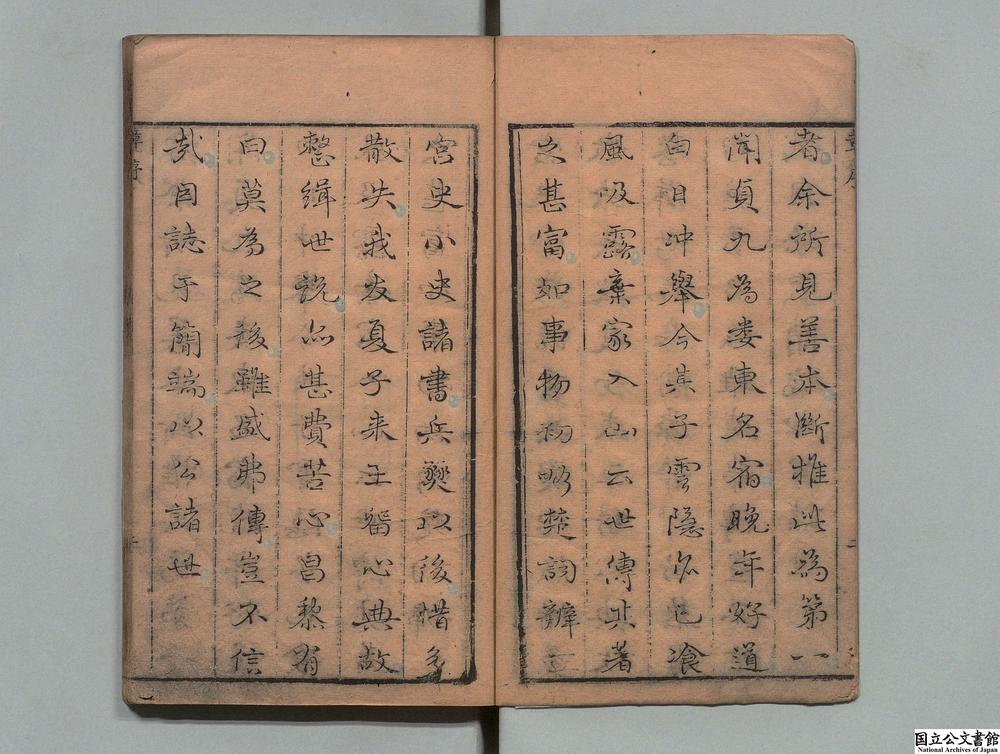 者余所見善本斷推此為第一
聞貞九為婁東名宿晚年好道
白日冲舉今其子雲隱亦已飡
風吸露棄家入山云世傳其著
之甚富如事物初畧楚詞辨
宫史小史諸書兵燹以後惜多
散失我友夏子来王留心典故
整緝世說亦甚費苦心昌黎有
曰莫為之後雖盛弗傳豈不信
㦲因誌于簡端以公諸世
国立公文書館
National Archives of Japan